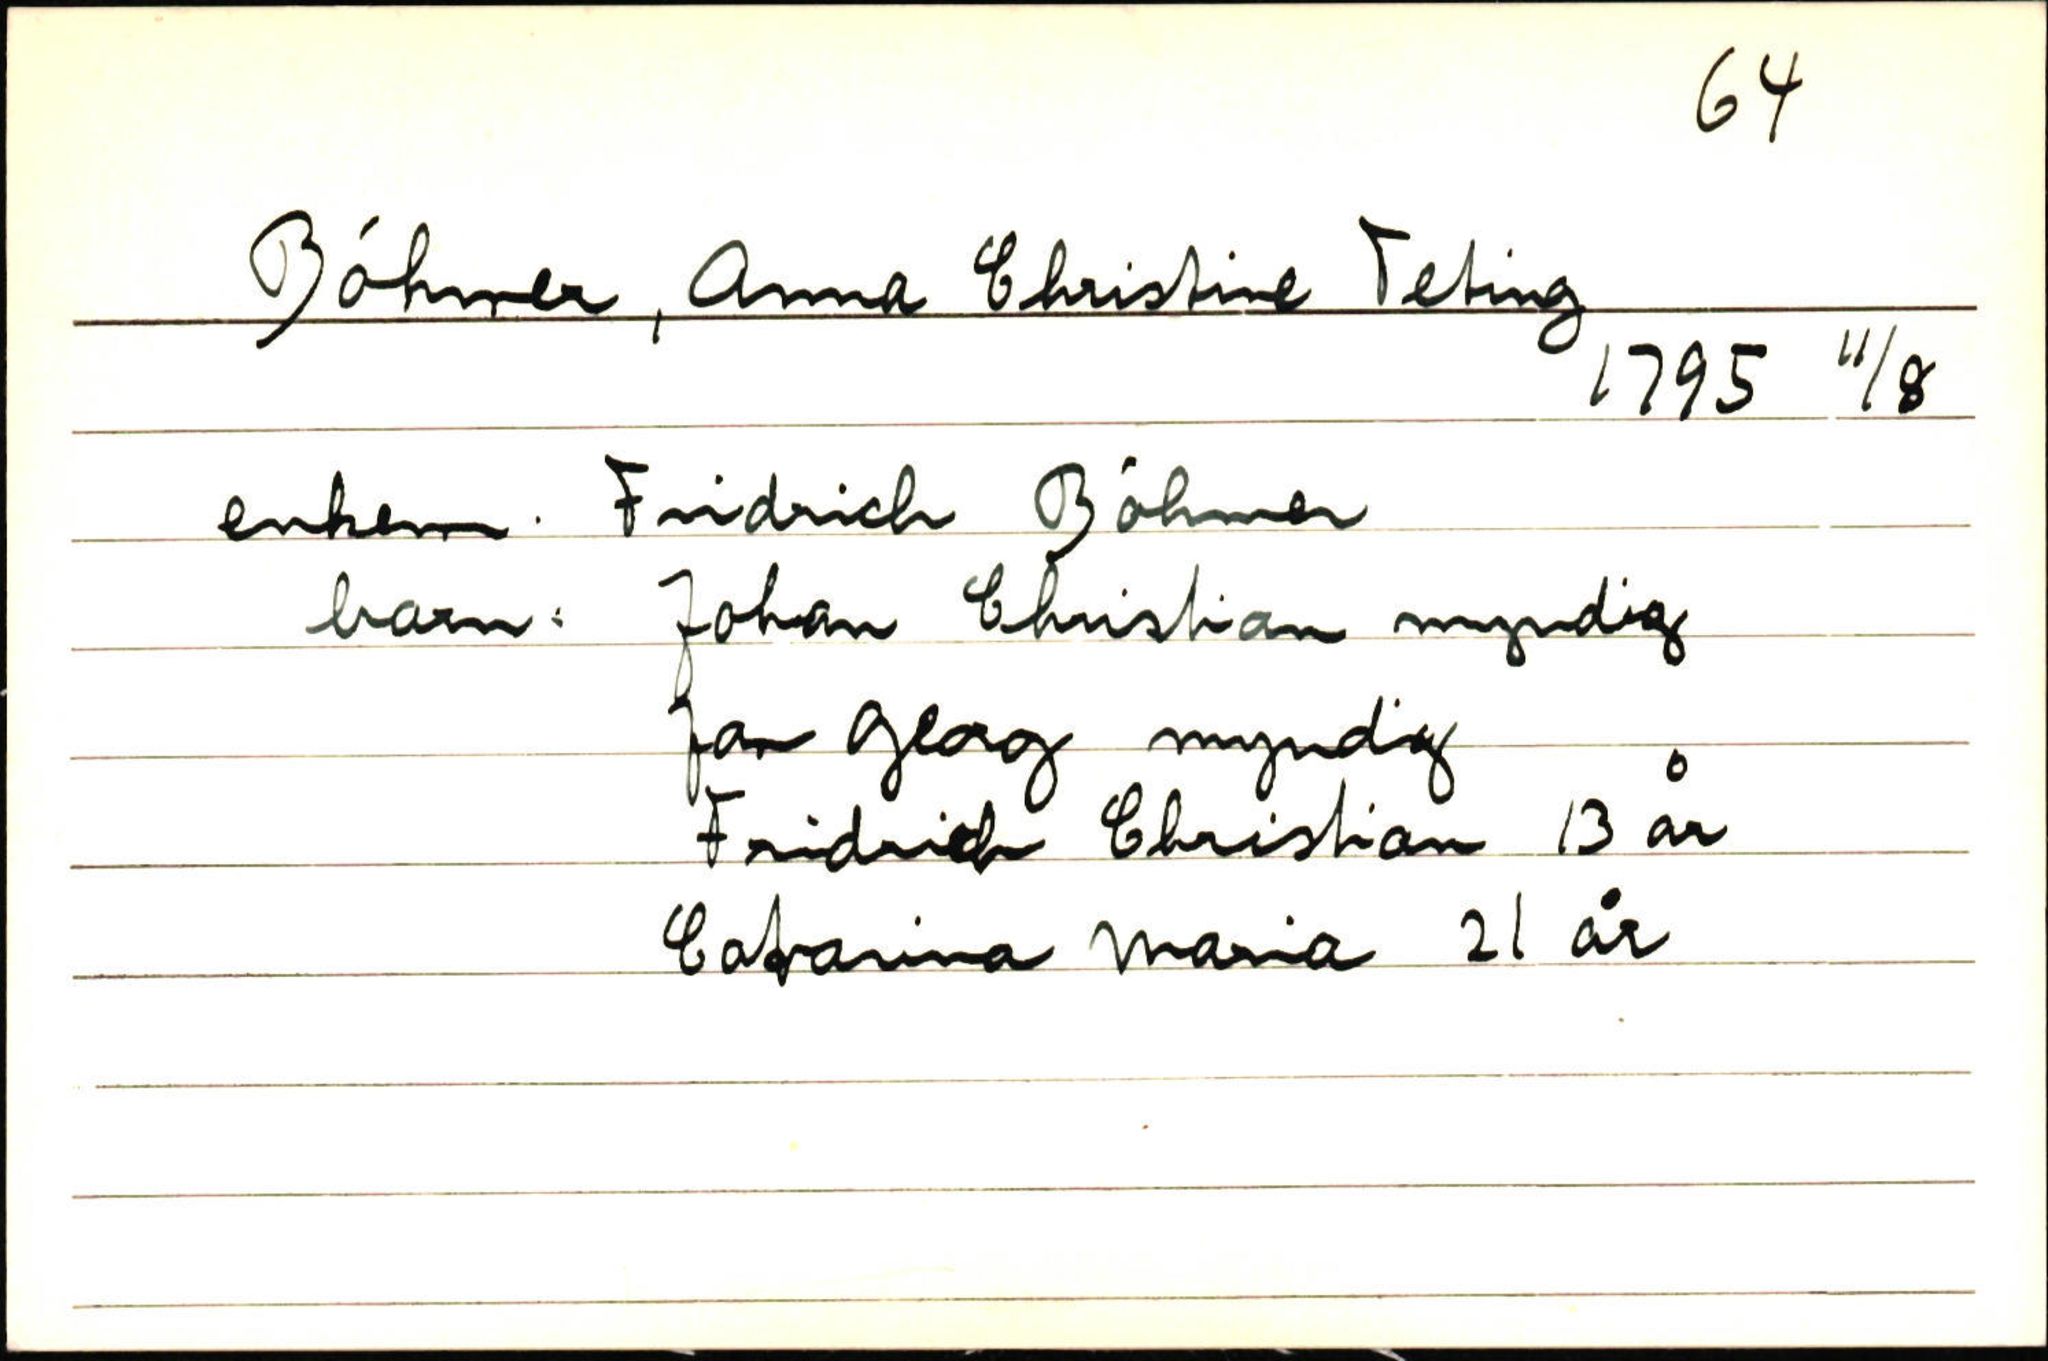 64
Böhmer, Anna Christine Feting
1795 11/8
enkem. Fridrich Böhmer
barn: Johan Christian myndig
Jan Georg myndig
Fridrich Christian 13 år
Catarina Maria 21 år